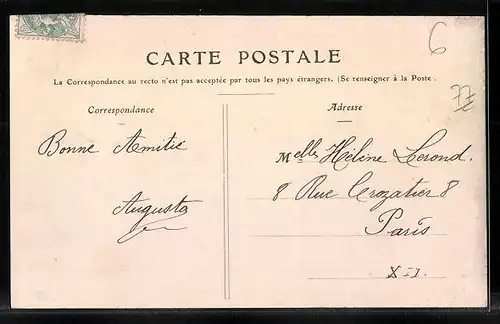 6
CARTE POSTALE
La Correspondance au recto n'est pas acceptée par tous les pays étrangers. (Se renseigner à la Poste.
77
Correspondance
Adresse
Bonne Amitié
Augusta
Melle Hélène Lerond.
8 Rue Crozatier 8
Paris
XII.